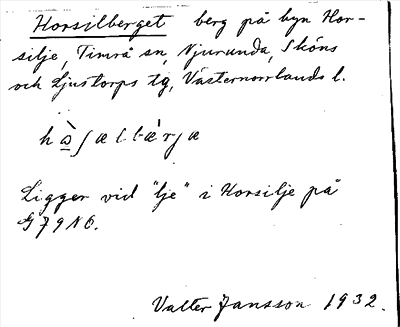 Horsilberget berg på byn Hor-
silje, Timrå sn, Njurunda, Sköns
och Ljustorps tg, Västernorrlands l.
Ligger vid "lje" i Horsilje på
G 79 N6.
Valter Jansson 1932.